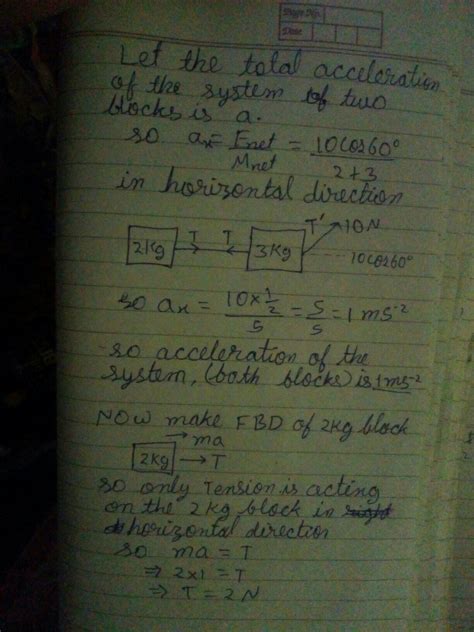 Page No.
Date
Let the total acceleration
of the system of two
blocks is a.
so ax = Fnet / Mnet = 10cos60° / 2+3
in horizontal direction
2Kg T T 3Kg T' 10N
10cos60°
so ax = 10×1/2 / 5 = 5/5 = 1 ms-2
so acceleration of the
system, (both blocks) is 1ms-2
NOW make FBD of 2kg block
ma
2Kg T
so only Tension is acting
on the 2kg block in right
horizontal direction
so ma = T
⇒ 2×1 = T
⇒ T = 2N